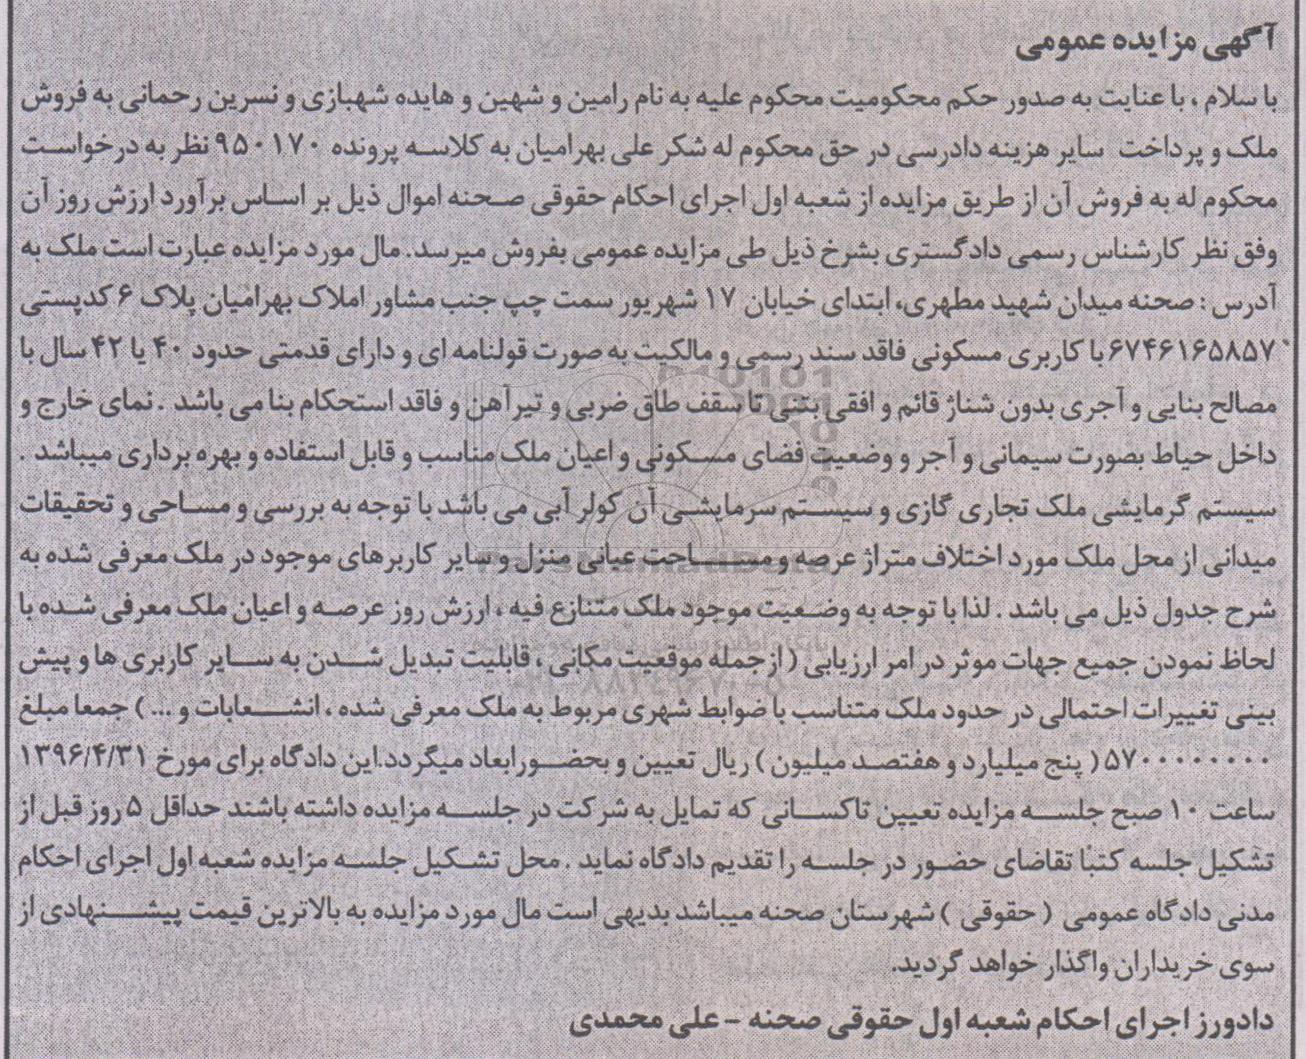 آگهی مزایده عمومی
با سلام ، با عنایت به صدور حکم محکومیت محکوم علیه به نام رامین و شهین و هایده شهبازی و نسرین رحمانی به فروش
ملک و پرداخت سایر هزینه دادرسی در حق محکوم له شکر علی بهرامیان به کلاسه پرونده ۹۵۰۱۷۰ نظر به درخواست
محکوم له به فروش آن از طریق مزایده از شعبه اول اجرای احکام حقوقی صحنه اموال ذیل بر اساس برآورد ارزش روز آن
وفق نظر کارشناس رسمی دادگستری بشرخ ذیل طی مزایده عمومی بفروش میرسد. مال مورد مزایده عبارت است ملک به
آدرس : صحنه میدان شهید مطهری، ابتدای خیابان ۱۷ شهریور سمت چپ جنب مشاور املاک بهرامیان پلاک ۶ کدپستی
۶۷۴۶۱۶۵۸۵۷ با کاربری مسکونی فاقد سند رسمی و مالکیت به صورت قولنامه ای و دارای قدمتی حدود ۴۰ یا ۴۲ سال با
مصالح بنایی و آجری بدون شناژ قائم و افقی بتنی تا سقف طاق ضربی و تیرآهن و فاقد استحکام بنا می باشد . نمای خارج و
داخل حیاط بصورت سیمانی و آجر و وضعیت فضای مسکونی و اعیان ملک مناسب و قابل استفاده و بهره برداری میباشد .
سیستم گرمایشی ملک تجاری گازی و سیستم سرمایشی آن کولر آبی می باشد با توجه به بررسی و مساحی و تحقیقات
میدانی از محل ملک مورد اختلاف متراژ عرصه و مساحت عیانی منزل و سایر کاربرهای موجود در ملک معرفی شده به
شرح جدول ذیل می باشد . لذا با توجه به وضعیت موجود ملک متنازع فیه ، ارزش روز عرصه و اعیان ملک معرفی شده با
لحاظ نمودن جمیع جهات موثر در امر ارزیابی ( از جمله موقعیت مکانی ، قابلیت تبدیل شدن به سایر کاربری ها و پیش
بینی تغییرات احتمالی در حدود ملک متناسب با ضوابط شهری مربوط به ملک معرفی شده ، انشعابات و ... ) جمعا مبلغ
۵۷۰۰۰۰۰۰۰۰ ( پنج میلیارد و هفتصد میلیون ) ریال تعیین و بحضور ابعاد میگردد.این دادگاه برای مورخ ۱۳۹۶/۴/۳۱
ساعت ۱۰ صبح جلسه مزایده تعیین تاکسانی که تمایل به شرکت در جلسه مزایده داشته باشند حداقل ۵ روز قبل از
تشکیل جلسه کتبا تقاضای حضور در جلسه را تقدیم دادگاه نماید . محل تشکیل جلسه مزایده شعبه اول اجرای احکام
مدنی دادگاه عمومی ( حقوقی ) شهرستان صحنه میباشد بدیهی است مال مورد مزایده به بالاترین قیمت پیشنهادی از
سوی خریداران واگذار خواهد گردید.
دادورز اجرای احکام شعبه اول حقوقی صحنه - علی محمدی